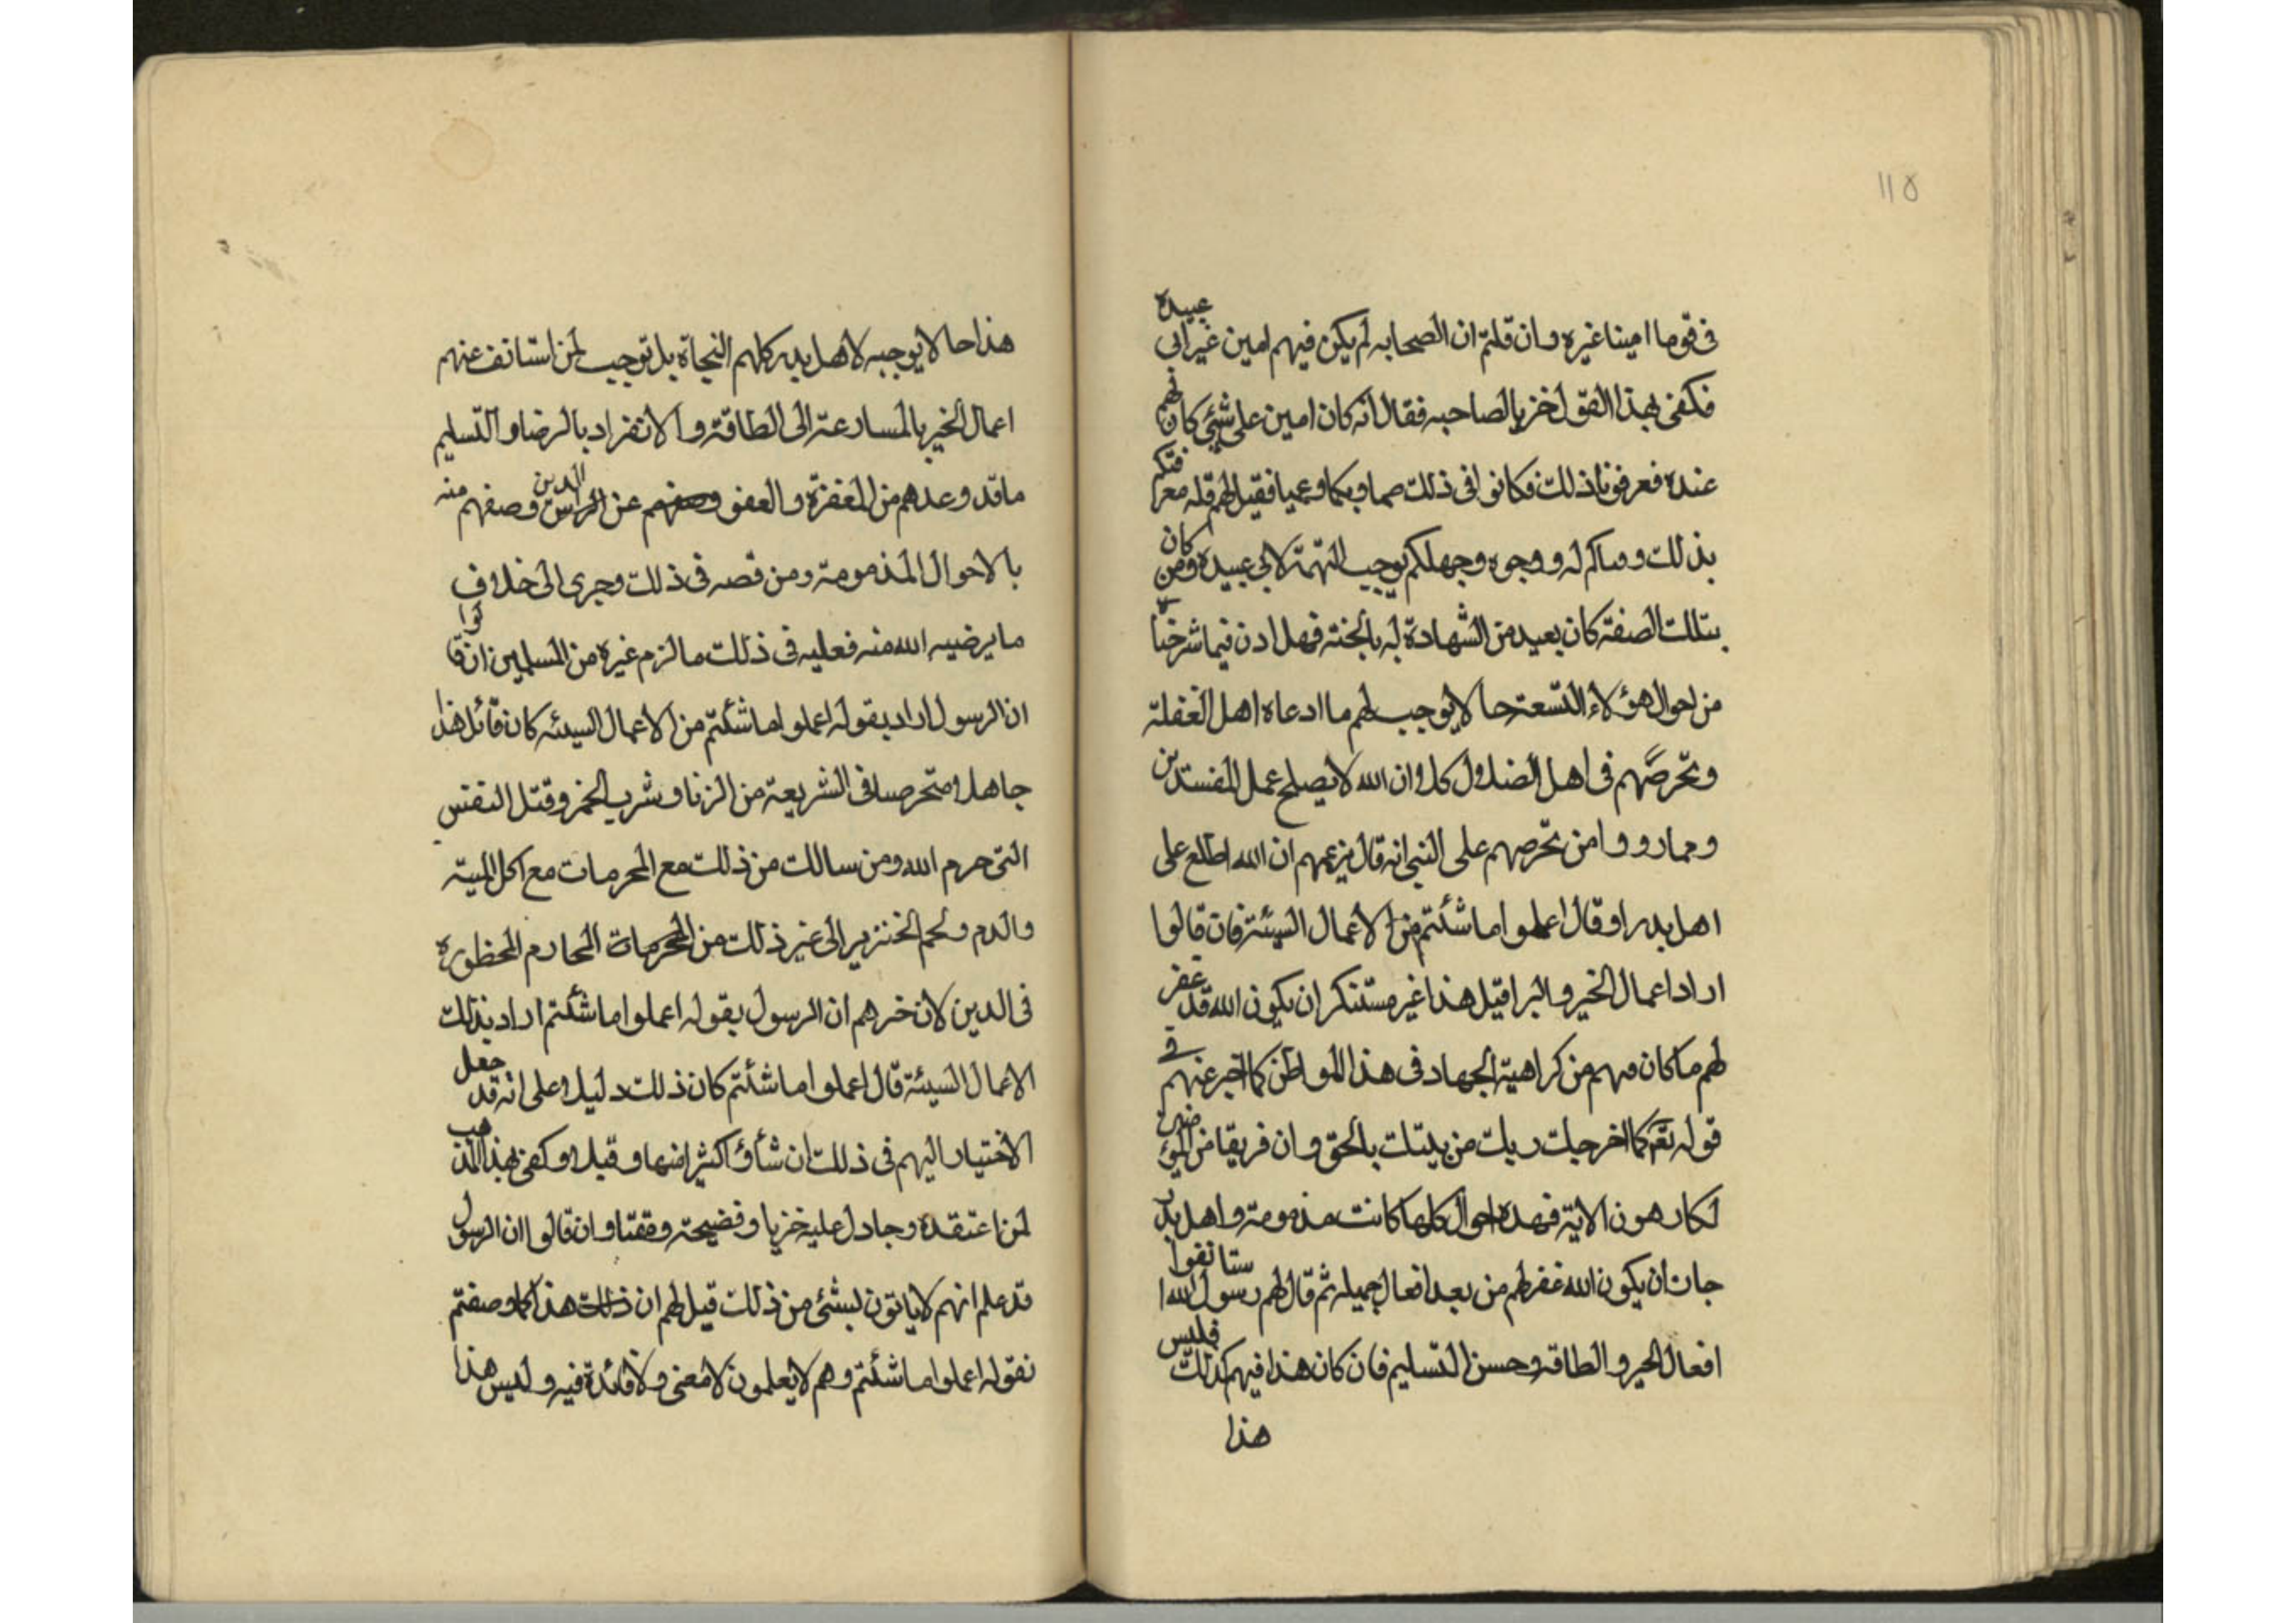 ١١٥
فى قوما امينا غيره وان قلتم ان الصحابه لم يكن فيهم امين غير ابى عبيده
فكفى بهذا القول خزيا لصاحبه فقال انه كان امين على شيئ كان لهم
عنده فعرفونا ذلك فكانوا فى ذلك صما وبكما وعميا فقيل لهم قلة معرفتكم
بذلك وجهلكم يوجب التهمة لابى عبيدة ومن كان
بتلك الصفة كان بعيد من الشهادة له بالجنة فهل ادن فيما شرحناه
من احوال هؤلاء التسعة حا لا يوجب لهم ما ادعاه اهل الغفلة
وتخرصهم فى اهل الضلال كلا وان الله لا يصلح عمل المفسدين
ومما رووا من تخرصهم على النبى انه قال بزعمهم ان الله اطلع على
اهل بدر او قال اعملوا ما شئتم من الاعمال السيئة فان قالوا
اراد اعمال الخير والبر قيل هذا غير مستنكر ان يكون الله قد غفر
لهم ما كان منهم من كراهية الجهاد فى هذا المواطن كما اخبر عنهم فى
قوله تعم كما اخرجك ربك من بيتك بالحق وان فريقا من المؤمنين
لكارهون الاية فهذه احوال كلها كانت مذمومة واهل بدر
جاز ان يكون الله غفر لهم من بعد افعال جميلة ثم قال لهم رسول الله استانفوا
افعال الخير والطاقة وحسن التسليم فان كان هذا فيهم كذلك فليس
هذا
هذا حا لا يوجبه لاهل بدر كلهم النجاة بل توجب لمن استانف عنهم
اعمال الخير بالمسارعة الى الطاقة والانفراد بالرضا والتسليم
ما قد وعدهم من المغفرة والعفو عن الدين وصفهم منه
بالاحوال المذمومة ومن قصه فى ذلك وجرى الى خلاف
ما يرضيه الله منه فعليه فى ذلك ما لزم غيره من المسلمين ان قالوا
ان الرسول اراد بقوله اعملوا ما شئتم من الاعمال السيئه كان قائل هذا
جاهلا ومتخرصا فى الشريعة من الزنا وشرب الخمر وقتل النفس
التى حرم الله ومن سالك من ذلك مع المحرمات مع اكل الميتة
والدم ولحم الخنزير الى غير ذلك من المحرمات المحارم المحظوره
فى الدين لان خبرهم ان الرسول بقوله اعملوا ما شئتم اراد بذلك
الاعمال السيئة قال اعملوا ما شئتم كان ذلك دليلا على انه قد جعل
الاختيار اليهم فى ذلك ان شأؤا كثيرا منها وقيلا وكفى بهذا المذهب
لمن اعتقده وجادل عليه خزيا وفضيحة ومقتا وان قالوا ان الرسول
قد علم انهم لا ياتون بشئى من ذلك قيل لهم ان ذلك هذا كما وصفتم
نقوله اعملوا ما شئتم وهم لا يعلمون لا معنى ولا فائدة فيه وليس هذا